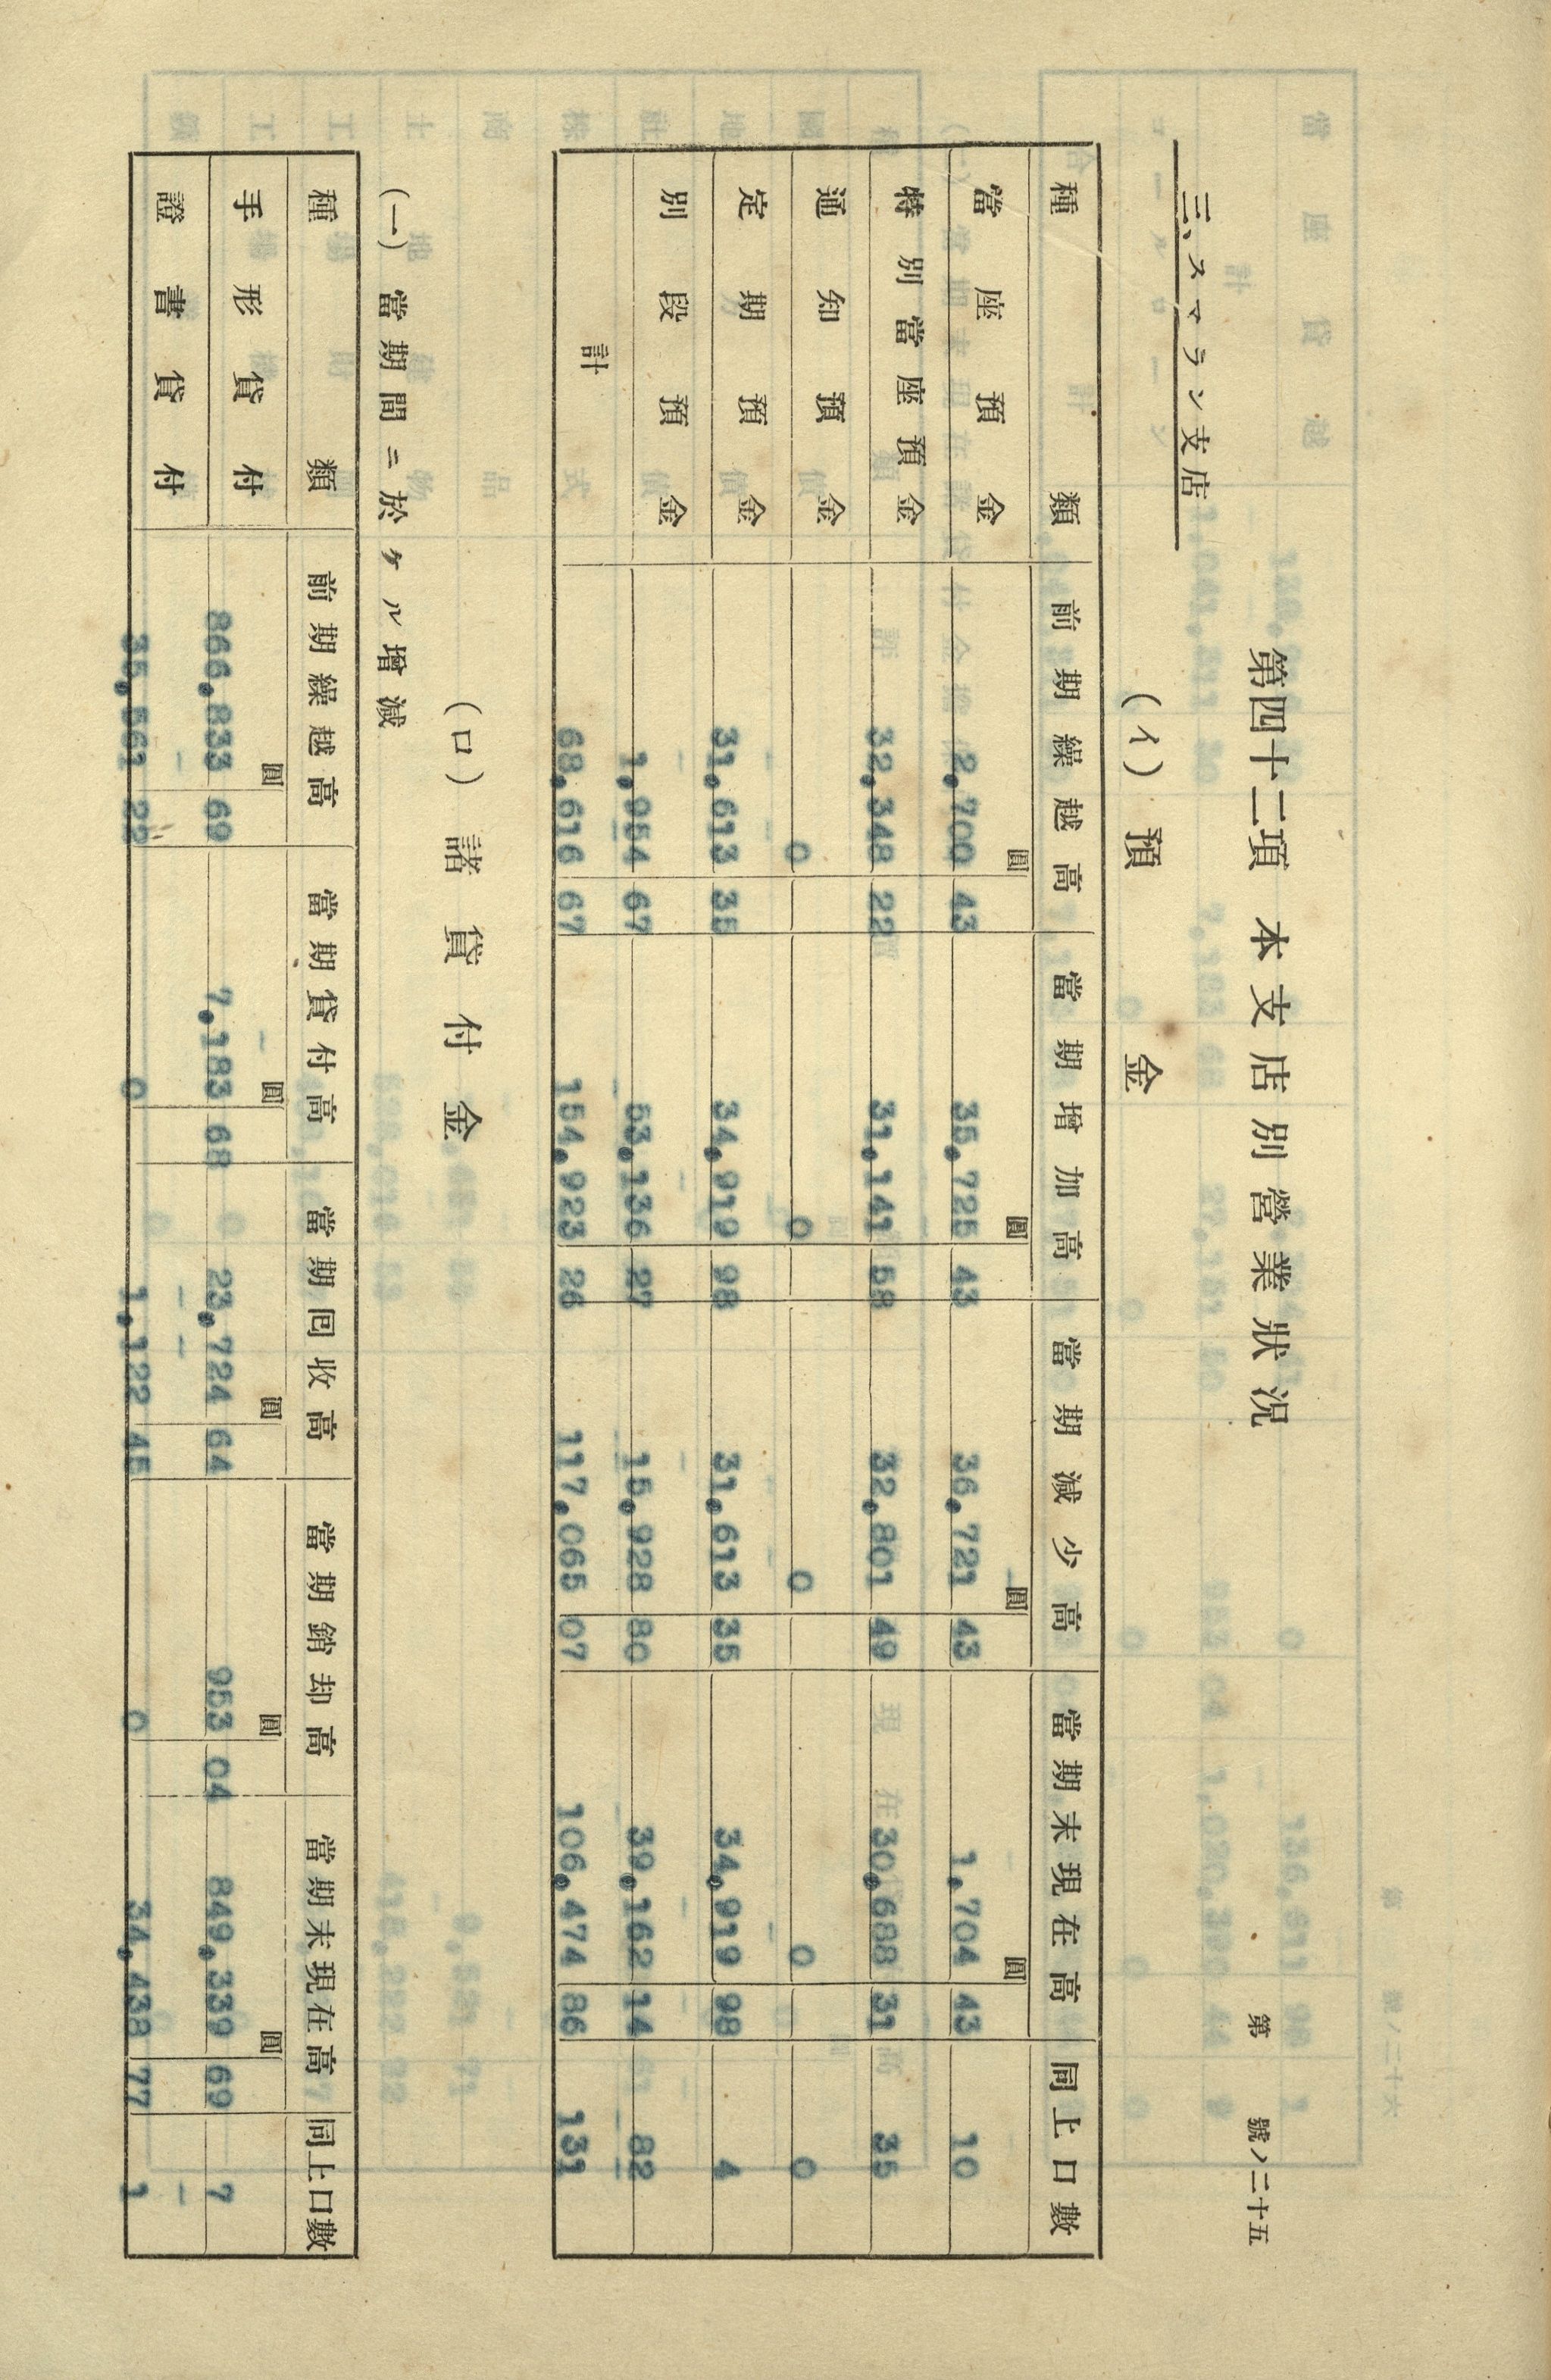 第　　號ノ二十五
第四十二項　本支店別營業狀況
三、スマラン支店
(イ)　預金
種類　前期繰越高　當期增加高　當期減少高　當期末現在高　同上口數
圓　圓　圓　圓
當座預金　2,700 43　35,725 43　36,721 43　1,704 43　10
特別當座預金　32,348 22　31,141 58　32,801 49　30,688 31　35
通知預金　0　0　0　0　0
定期預金　31,613 35　34,919 98　31,613 35　34,919 98　4
別段預金　1,954 67　53,136 27　15,928 80　39,162 14　82
計　68,616 67　154,923 26　117,065 07　106,474 86　131
(ロ)　諸貸付金
(一)　當期間ニ於ケル增減
種類　前期繰越高　當期貸付高　當期回收高　當期銷却高　當期末現在高　同上口數
圓　圓　圓　圓　圓
手形貸付　866,833 69　7,183 68　23,724 64　953 04　849,339 69　7
證書貸付　35,561 22　0　1,122 45　0　34,438 77　1